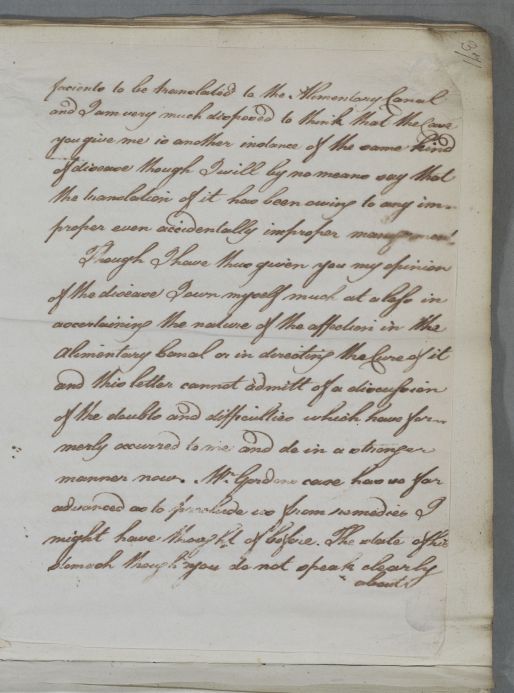 34
patients to be translated to the Alimentary Canal
and I am very much disposed to think that the Case
you give me is another instance of the same kind
of disease though I will by no means say that
the translation of it has been owing to any im-
proper even accidentally improper management.
Though I have thus given you my opinion
of the disease I own myself much at a loss in
ascertaining the nature of the affection in the
Alimentary Canal or in directing the Cure of it
and this letter cannot admitt of a discussion
of the doubts and difficulties which have for-
merly occurred to me and do in a stronger
manner now. Mr. Gordons case has so far
advanced as to preclude us from remedies I
might have thought of before. The state of his
stomach though you do not speak clearly
about